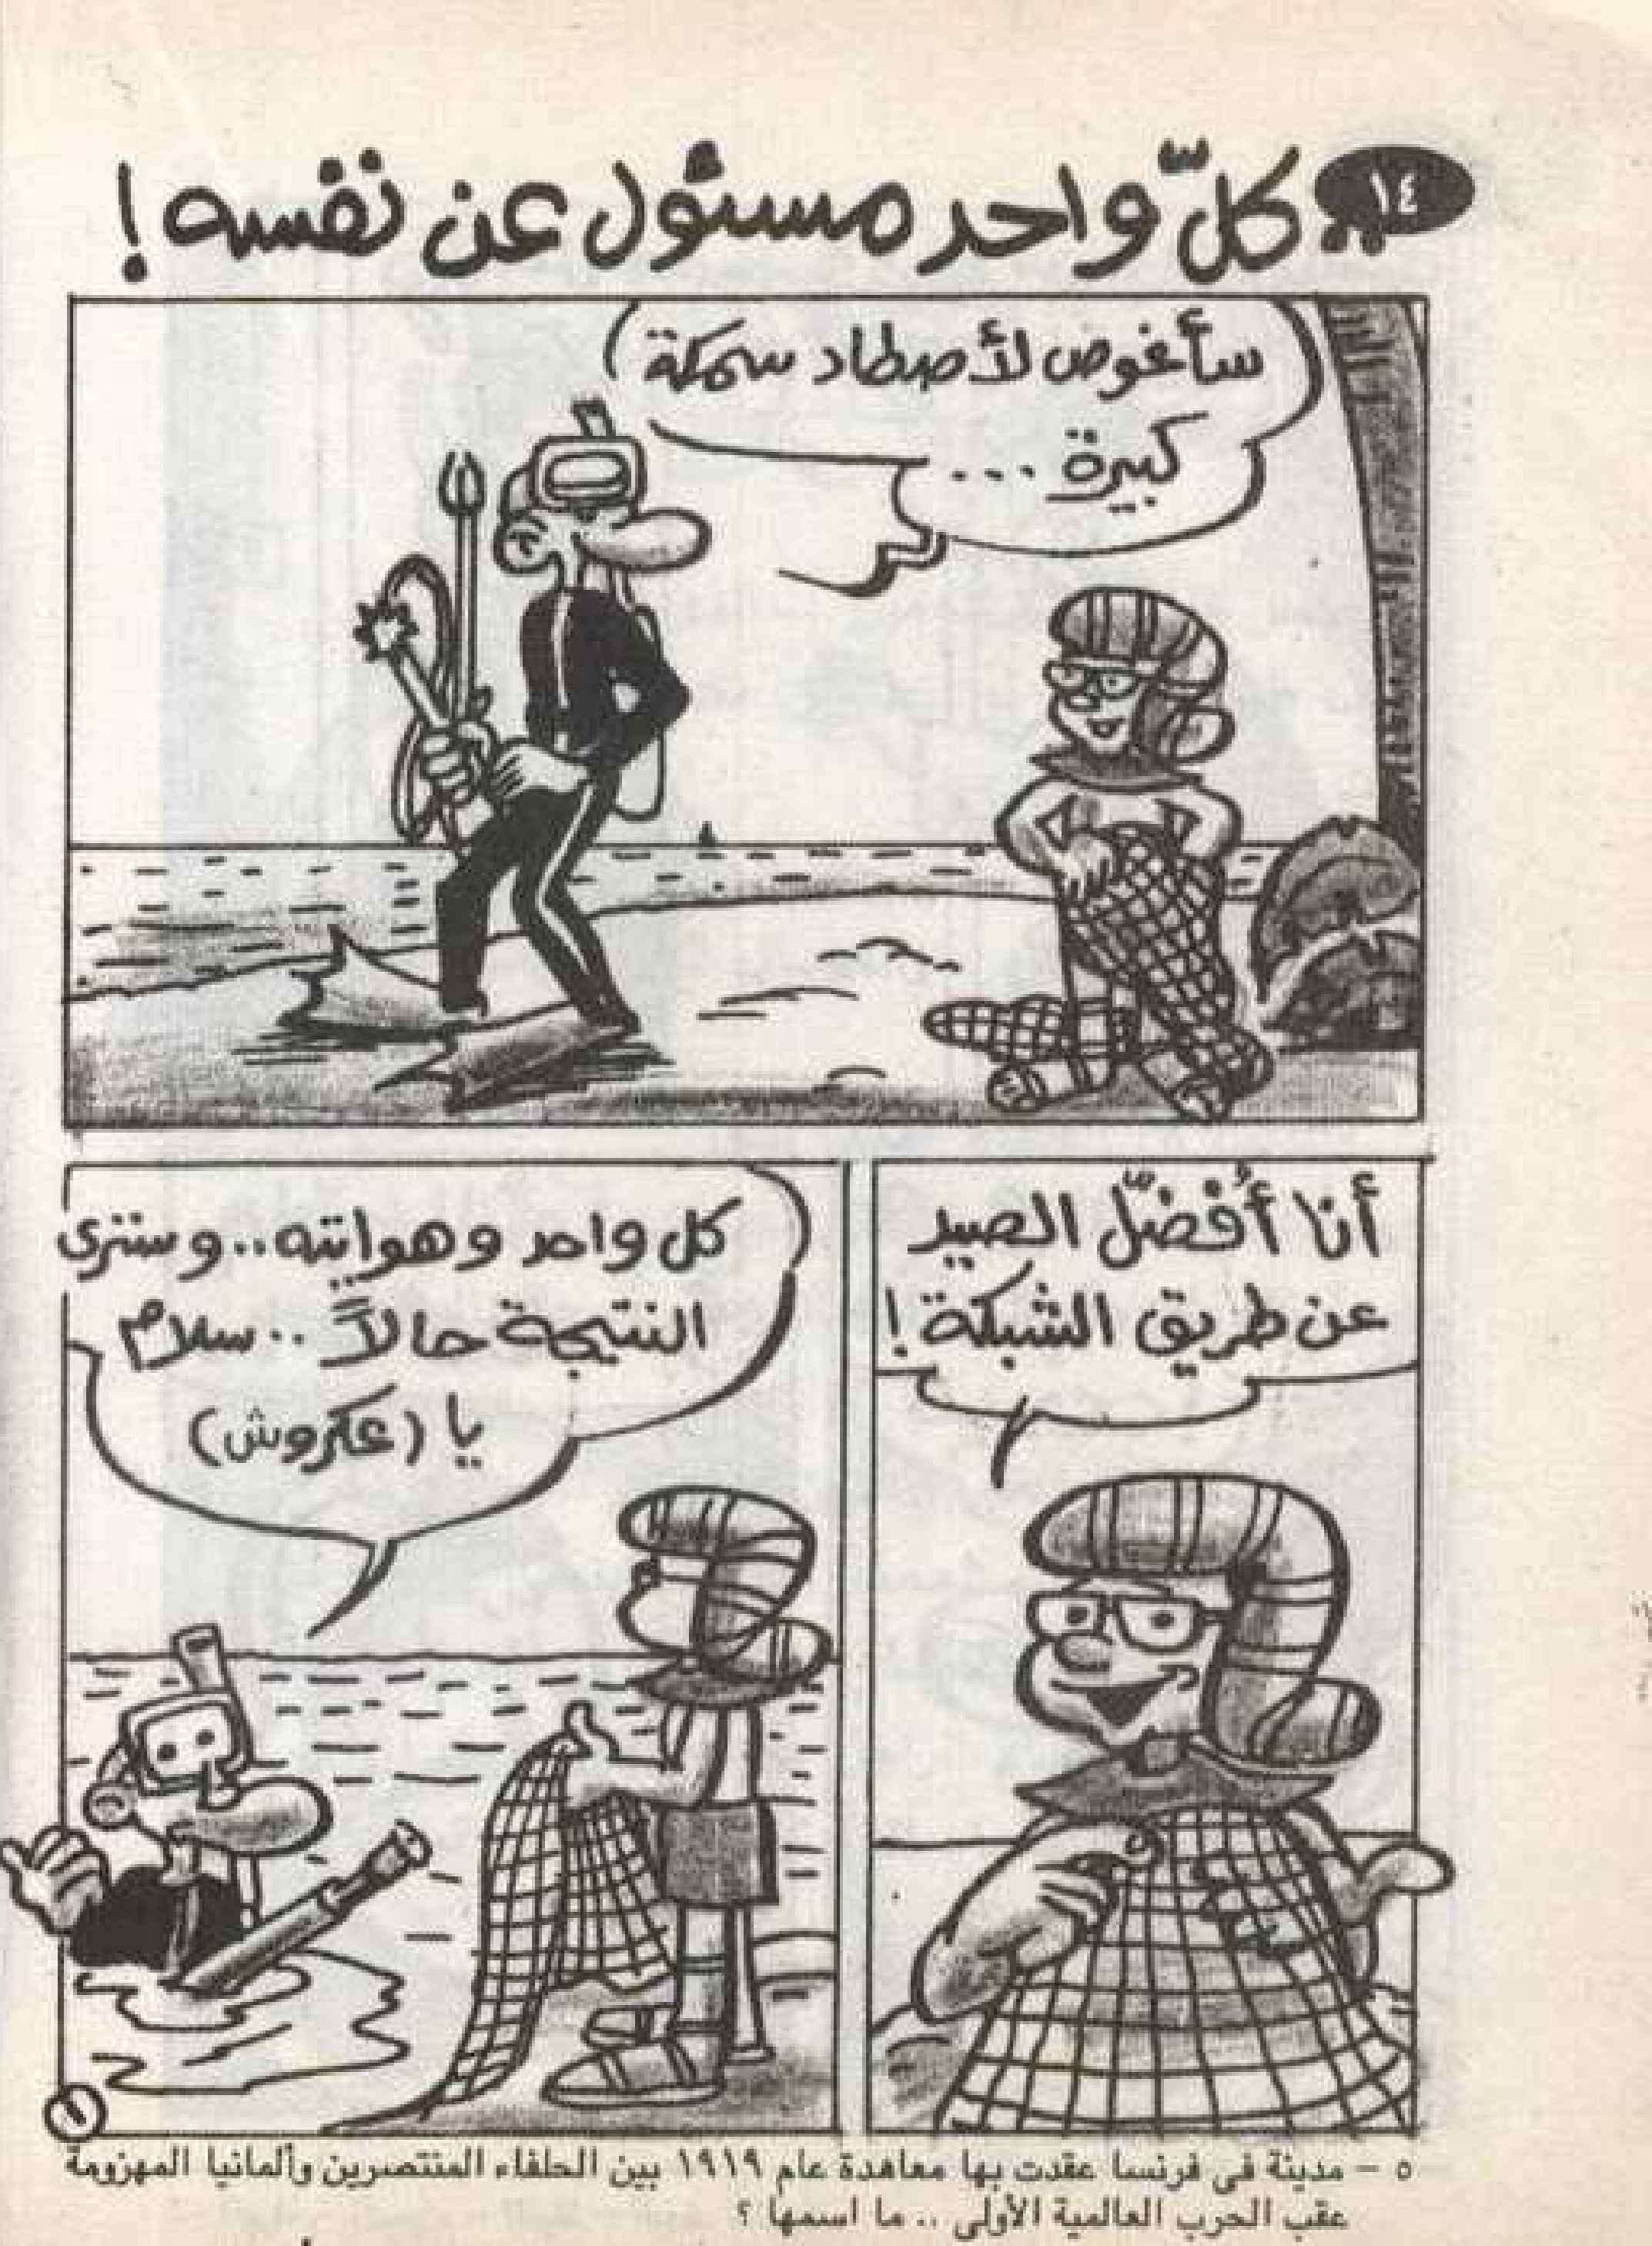 ١٤
كلّ واحد مسئول عن نفسه !
سأغوص لأصطاد سمكة
كبيرة ...
أنا أُفضّل الصيد
عن طريق الشبكة !
كل واحد وهوايته .. وسنرى
النتيجة حالاً .. سلام
يا (عكروش)
١
٥ - مدينة فى فرنسا عقدت بها معاهدة عام ١٩١٩ بين الحلفاء المنتصرين وألمانيا المهزومة
عقب الحرب العالمية الأولى .. ما اسمها ؟